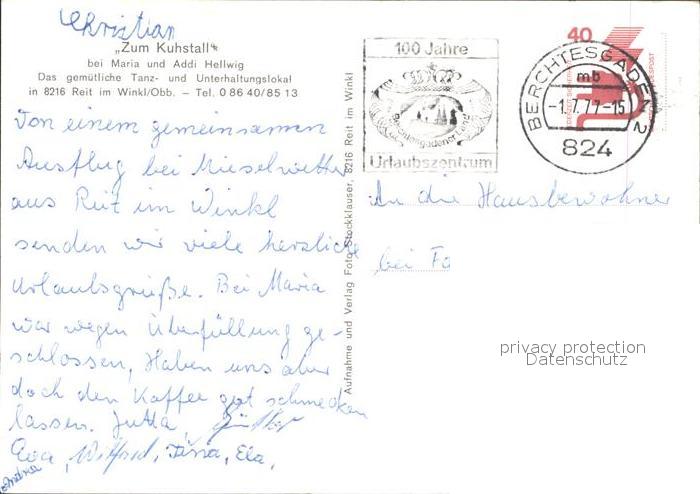 Christian
„Zum Kuhstall“
bei Maria und Addi Hellwig
Das gemütliche Tanz- und Unterhaltungslokal
in 8216 Reit im Winkl/Obb. – Tel. 0 86 40/85 13
Von einem gemeinsamen
Ausflug bei Mieselwetter
aus Reit im Winkl
senden wir viele herzliche
Urlaubsgrüße. Bei Maria
war wegen Überfüllung ge-
schlossen, Haben uns aber
doch den Kaffee gut schmecken
lassen. Jutta, Günther
Eva, Wilfried, Tina, Ela,
Andrea
Aufnahme und Verlag Foto-Stockklauser, 8216 Reit im Winkl
100 Jahre
Berchtesgadener Land
Urlaubszentrum
BERCHTESGADEN 2
mb
-1.7.77-15
824
40
An die Hausbewohner
bei Fa
privacy protection
Datenschutz